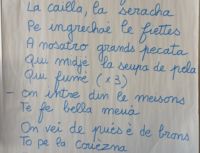 La cailla, la seracha
Pe ingrechaé le fiettes
A nosatro grands pecata
Qui midjè la seupa de pola
Qui fumé (x3)
- on intre din le meisons
Te fé bella meuà
On vei de puès é de brons
To pe la couezna